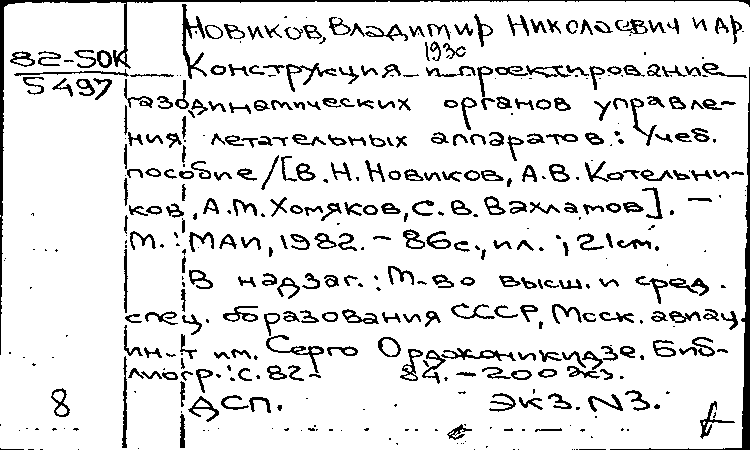 Новиков, Владимир Николаевич и др
1930
82-50К
5497
Конструкция и проектирование
газодинамических органов управле-
ния летательных аппаратов: Учеб.
пособие/[В.Н. Новиков, А.В. Котельни-
ков, А.М. Хомяков, С.В. Вахламов]. –
М.: МАИ, 1982. – 86с., ил.; 21см.
В надзаг.: М-во высш. и сред.
спец. образования СССР, Моск. авиац.
ин-т им. Серго Орджоникидзе. Биб-
лиогр.: с. 82- 84. – 200 экз.
8 ДСП. ЭКЗ. N3.